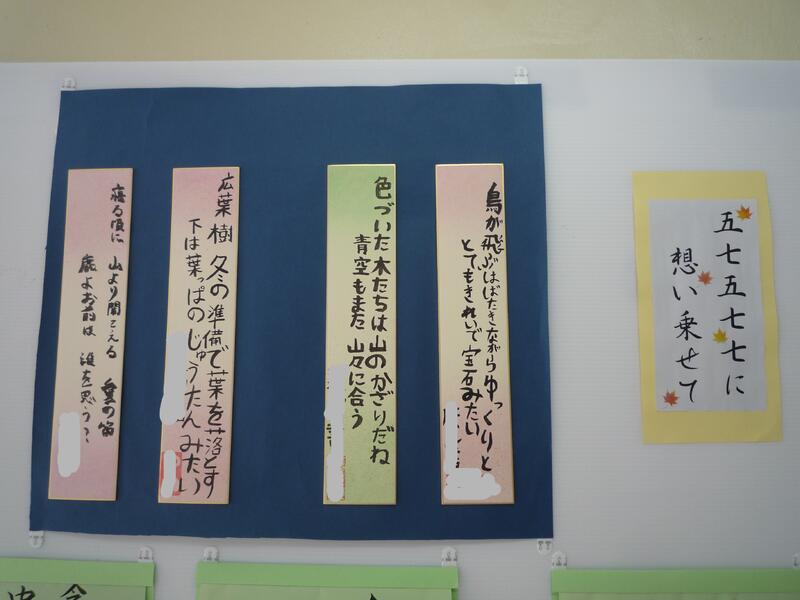 五七五七七に
想い乗せて
鳥が飛ぶはばたきながらゆっくりと
とてもきれいで宝石みたい
色づいた木たちは山のかざりだね
青空もまた山々に合う
広葉樹 冬の準備で葉を落とす
下は葉っぱのじゅうたんみたい
寝る頃に 山より聞こえる 笛
鹿よお前は 誰を思うう